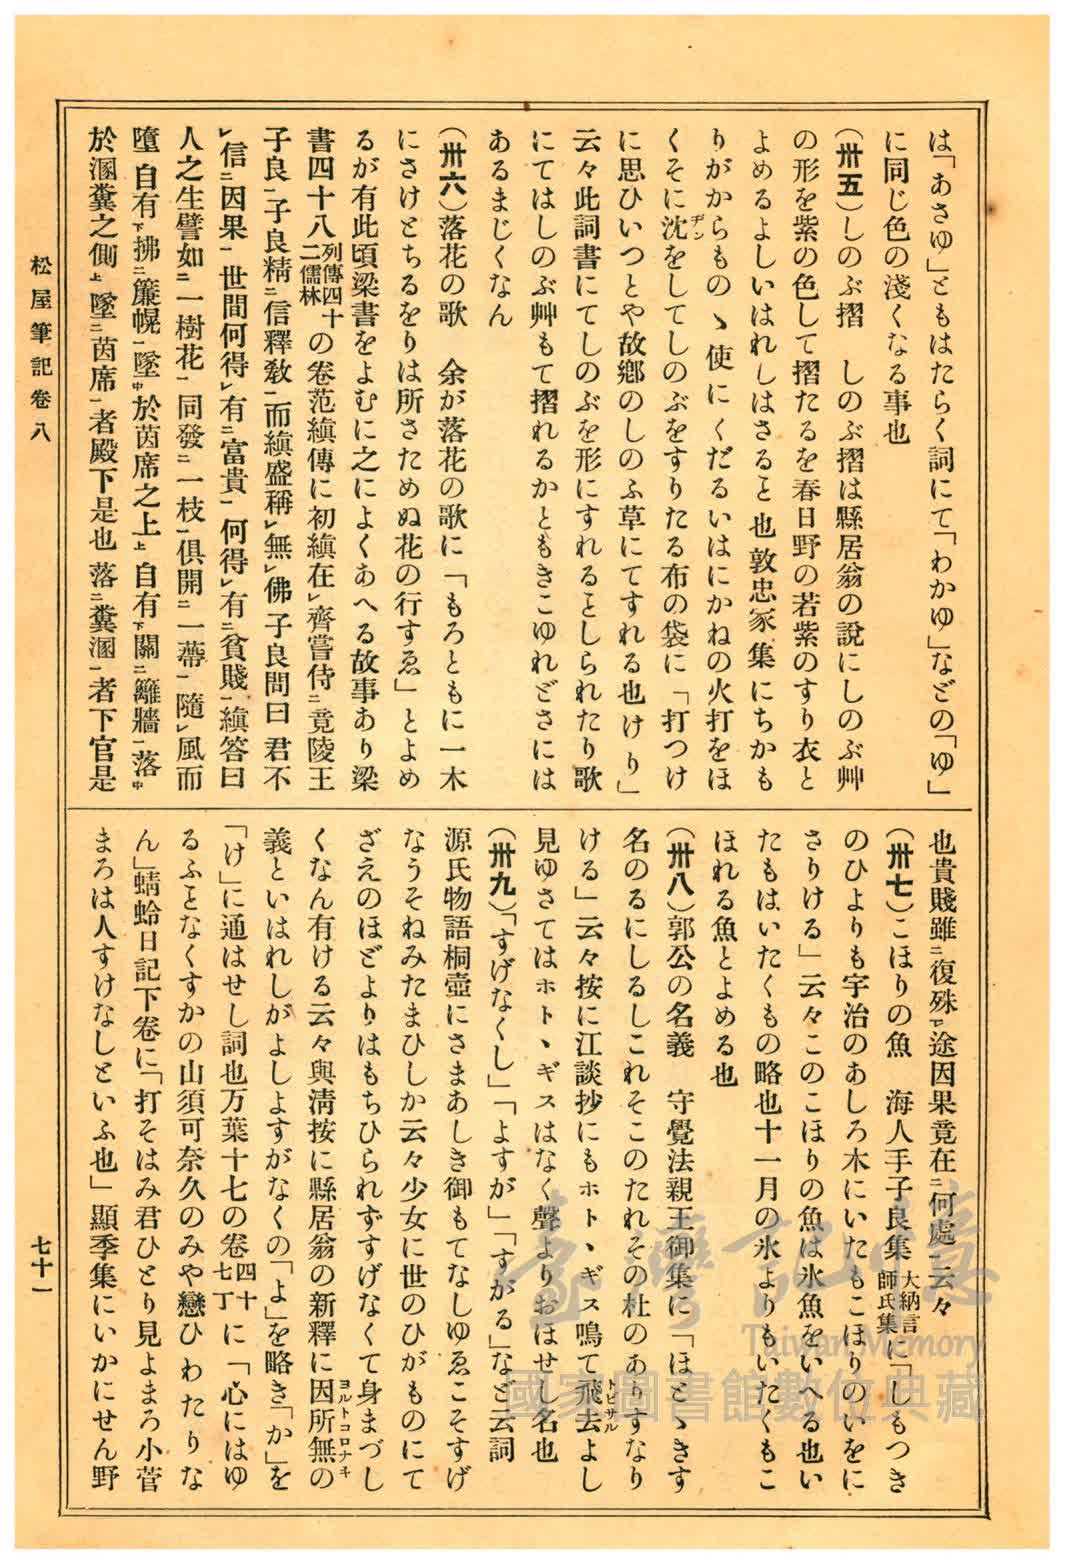 は「あさゆ」ともはたらく詞にて「わかゆ」などの「ゆ」
に同じ色の淺くなる事也
(卅五)しのぶ摺　しのぶ摺は縣居翁の說にしのぶ艸
の形を紫の色して摺たるを春日野の若紫のすり衣と
よめるよしいはれしはさることや也敦忠家集にちかも
りがからものゝ使にくだるいはにかねの火打をほ
くそに沈ヂンをしてしのぶをすりたる布の袋に「打つけ
に思ひいつとや故鄕のしのふ草にてすれる也けり」
云々此詞書にてしのぶを形にすれることしられたり歌
にてはしのぶ艸もて摺れるかともきこゆれどさには
あるまじくなん
(卅六)落花の歌　余が落花の歌に「もろともに一木
にさけとちるをりは所さためぬ花の行すゑ」とよめ
るが有此頃梁書をよむに之によくあへる故事あり梁
書四十八列傳四十二儒林の卷范縝傳に初縝在レ齊嘗侍二竟陵王
子良一子良精二信釋敎一而縝盛稱レ無レ佛子良問曰君不
レ信二因果一世間何得レ有二富貴一何得レ有二貧賤一縝答曰
人之生譬如二一樹花一同發二一枝一俱開二一蔕一隨レ風而
墮自有下拂二簾幌一墜中於茵席之上上自有下關二籬牆一落中
於溷糞之側上墜二茵席一者殿下是也落二糞溷一者下官是
也貴賤雖二復殊一レ途因果竟在二何處一云々
(卅七)こほりの魚　海人手子良集大納言師氏集に「しもつき
のひよりも宇治のあしろ木にいたもこほりのいをに
さりける」云々このこほりの魚は氷魚をいへる也い
たもはいたくもの略也十一月の氷よりもいたくもこ
ほれる魚とよめる也
(卅八)郭公の名義　守覺法親王御集に「ほとゝきす
名のるにしるしこれそこのたれその杜のありすなり
ける」云々按に江談抄にもホトヽギス鳴て飛去トビサルよし
見ゆさてはホトヽギスはなく聲よりおほせし名也
(卅九)「すげなくし」「よすが」「すがる」など云詞
源氏物語桐壺にさまあしき御もてなしゆゑこそすげ
なうそねみたまひしか云々少女に世のひがものにて
ざえのほどよりはもちひられずすげなくて身まづし
くなん有ける云々與淸按に縣居翁の新釋に因所無ヨルトコロナキの
義といはれしがよしよすがなくの「よ」を略き「か」を
「け」に通はせし詞也万葉十七の卷四十七丁に「心にはゆ
るふことなくすかの山須可奈久のみや戀ひわたりな
ん」蜻蛉日記下卷に「打そはみ君ひとり見よまろ小菅
まろは人すけなしといふ也」顯季集にいかにせん野
松屋筆記卷八
七十一
臺灣記憶
Taiwan Memory
國家圖書館數位典藏